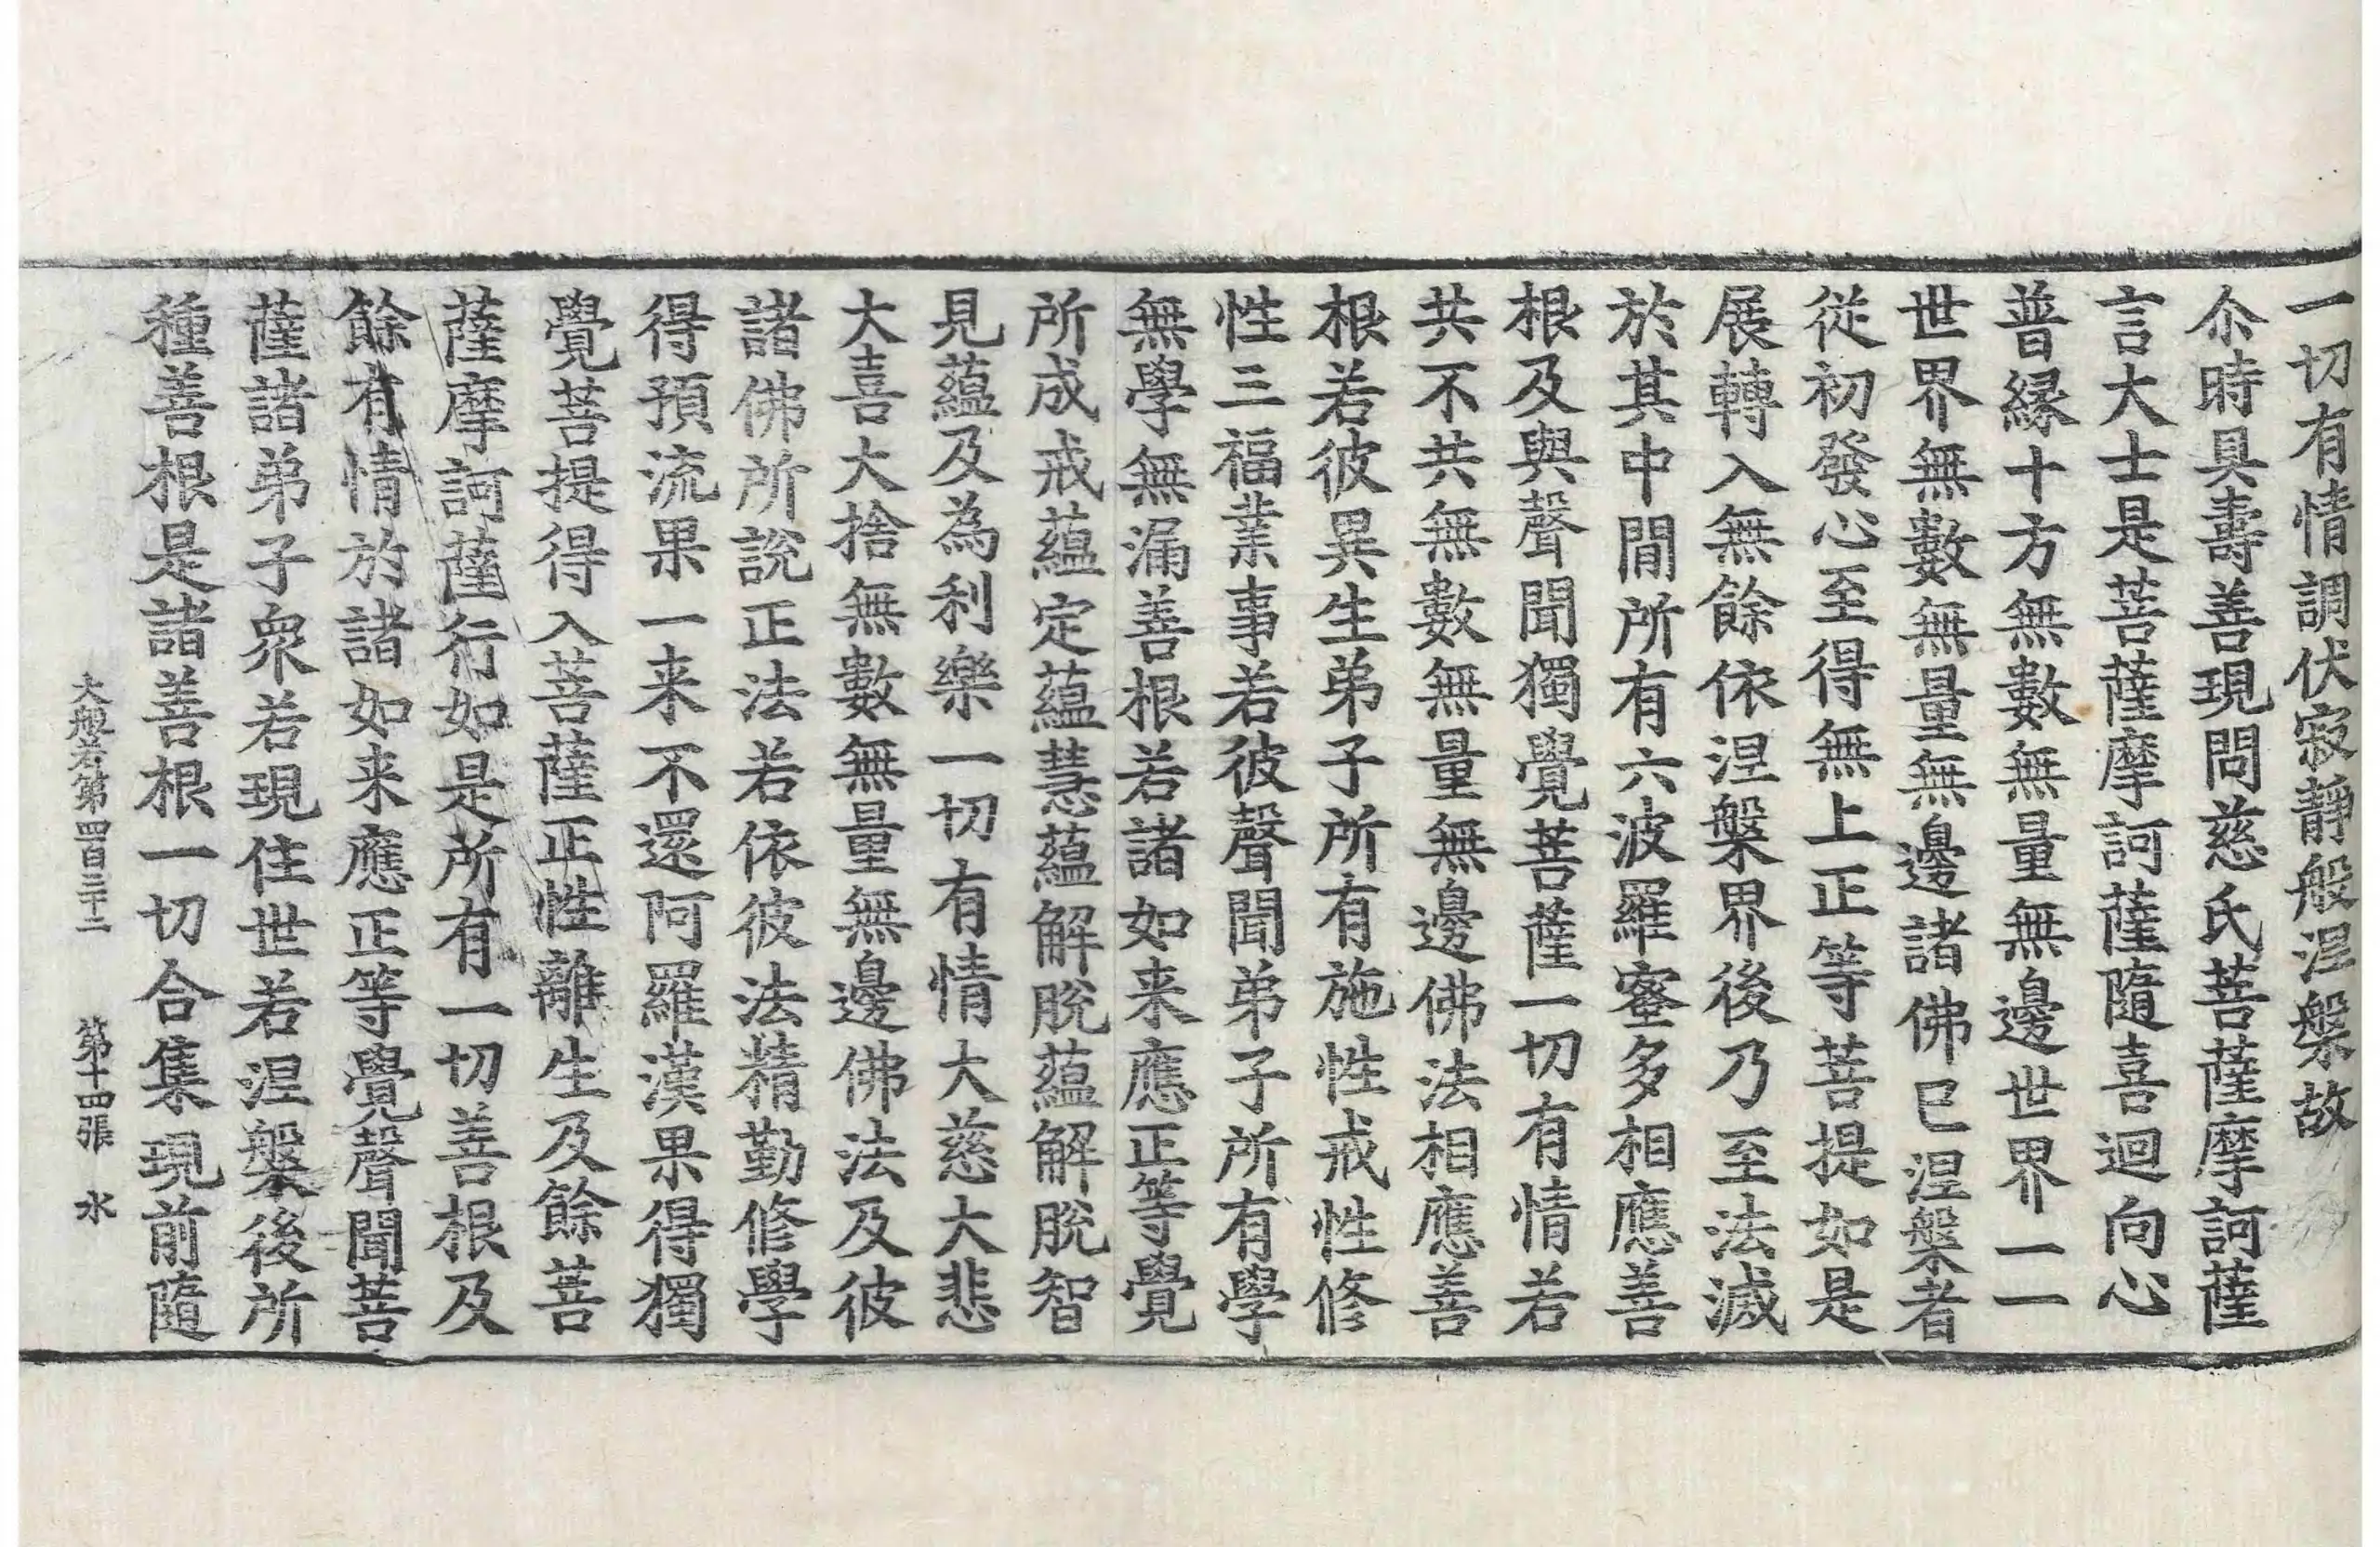 一切有情調伏寂靜般涅槃故
尒時具壽善現問慈氏菩薩摩訶薩
言大士是菩薩摩訶薩隨喜迴向心
普縁十方無數無量無邊世界一一
世界無數無量無邊諸佛已涅槃者
從初發心至得無上正等菩提如是
展轉入無餘依涅槃界後乃至法滅
於其中間所有六波羅蜜多相應善
根及與聲聞獨覺菩薩一切有情若
共不共無數無量無邊佛法相應善
根若彼異生弟子所有施性戒性修
性三福業事若彼聲聞弟子所有學
無學無漏善根若諸如来應正等覺
所成戒蘊定蘊慧蘊解脫蘊解脫智
見蘊及為利樂一切有情大慈大悲
大喜大捨無數無量無邊佛法及彼
諸佛所說正法若依彼法精勤修學
得預流果一来不還阿羅漢果得獨
覺菩提得入菩薩正性離生及餘菩
薩摩訶薩行如是所有一切善根及
餘有情於諸如来應正等覺聲聞菩
薩諸弟子衆若現住世若涅槃後所
種善根是諸善根一切合集現前隨
大般若第四百三十二 第十四張 水